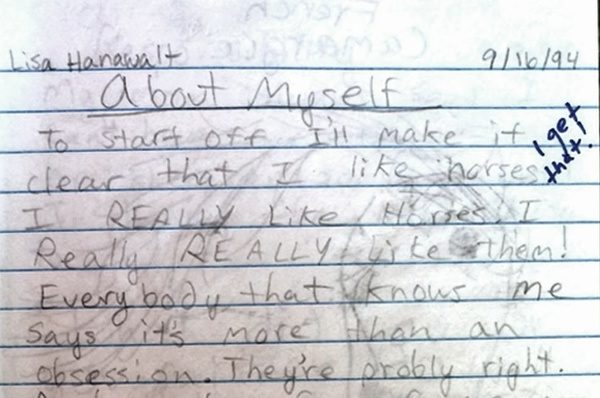 Lisa Hanawalt 9/16/94
About Myself
To start off I'll make it
clear that I like horses.
I get
that!
I REALLY Like Horses. I
Really REALLY Like them!
Everybody that knows me
says it's more than an
obsession. They're probly right.